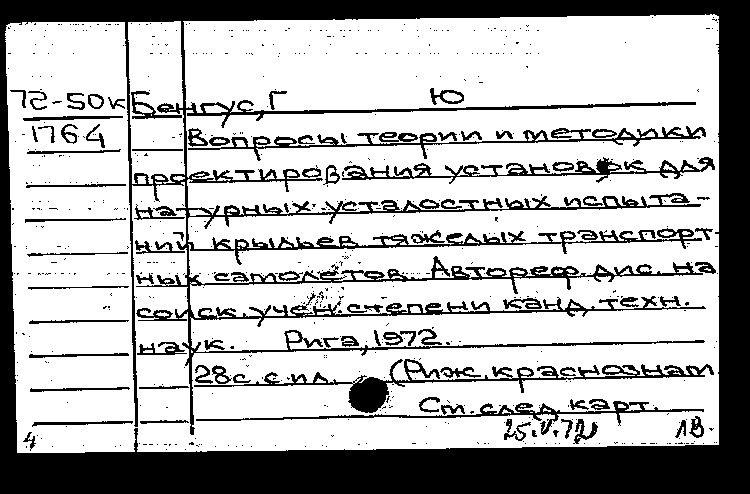 72-50к Бенгус, Г Ю
1764 Вопросы теории и методики
проектирования установок для
натурных усталостных испыта-
ний крыльев тяжелых транспорт-
ных самолетов. Автореф. дис. на
соиск. учен. степени канд. техн.
наук. Рига, 1972.
28с. с ил. (Риж. краснознам
См. след. карт.
4 25.V.72 1В.